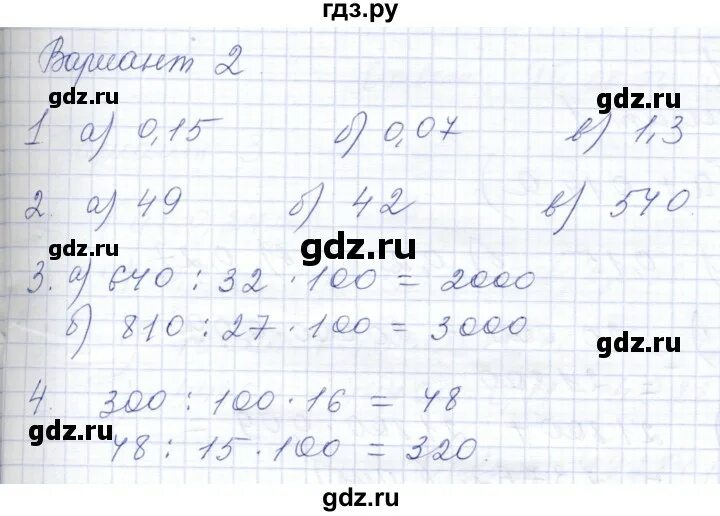 гдз.ру
Вариант 2
gdz.ru gdz.ru
1 а) 0,15 б) 0,07 в) 1,3
2. а) 49 б) 42 в) 540.
gdz.ru gdz.ru
3. а) 640 : 32 · 100 = 2000
б) 810 : 27 · 100 = 3000
gdz.ru
4. 300 : 100 · 16 = 48
gdz.ru
48 : 15 · 100 = 320.
gdz.ru
gdz.ru